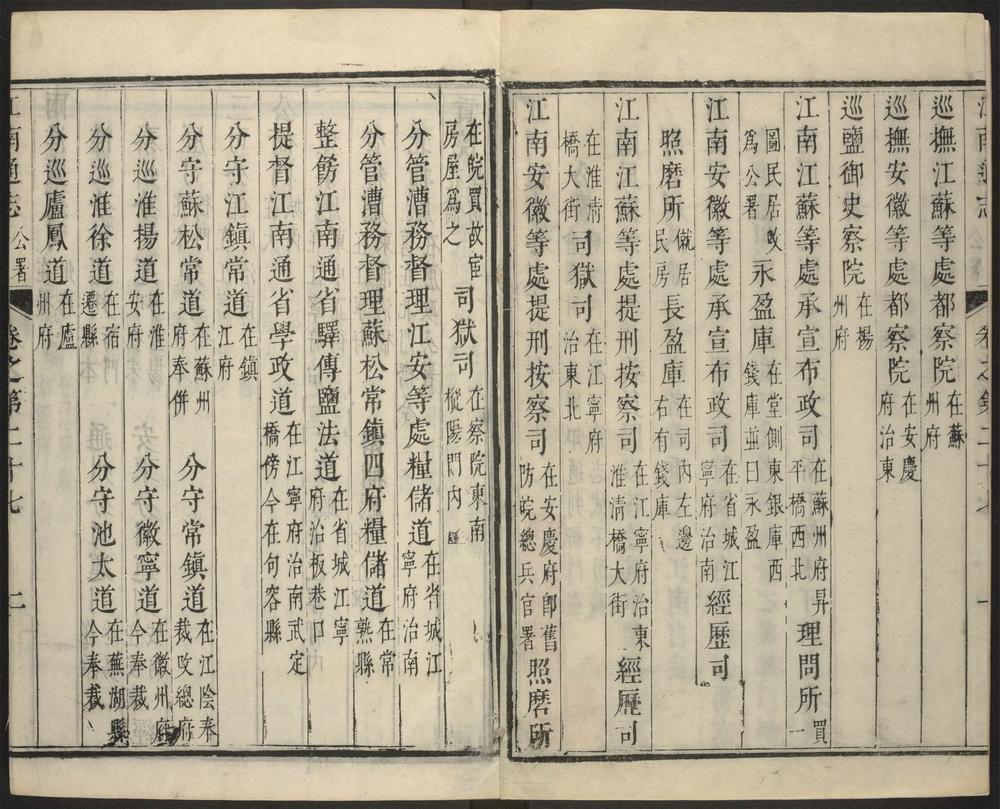 巡撫江蘇等處都察院在蘇州府
巡撫安徽等處都察院在安慶府治東
巡鹽御史察院在揚州府
江南江蘇等處承宣布政司在蘇州府昇平橋西北理問所買一
圖民居改為公署永盈庫在堂側東銀庫西錢庫並曰永盈
江南安徽等處承宣布政司在省城江寧府治南經歷司
照磨所僦居民房長盈庫在司內左邊右有錢庫
江南江蘇等處提刑按察司在江寧府治東淮清橋大街經歷司
在淮清橋大街司獄司在江寧府治東北
江南安徽等處提刑按察司在安慶府即舊防皖總兵官署照磨所
在皖買故宦房屋為之司獄司在察院東南樅陽門內
分管漕務督理江安等處糧儲道在省城江寧府治南
分管漕務督理蘇松常鎮四府糧儲道在常熟縣
整飭江南通省驛傳鹽法道在省城江寧府治板巷口
提督江南通省學政道在江寧府治南武定橋傍今在句容縣
分守江鎮常道在鎮江府
分守蘇松常道在蘇州府奉併分守常鎮道在江陰奉裁改總府
分巡淮揚道在淮安府分守徽寧道在徽州府今奉裁
分巡淮徐道在宿遷縣分守池太道在蕪湖縣今奉裁
分巡廬鳳道在廬州府
江南通志公署卷之第二十七二